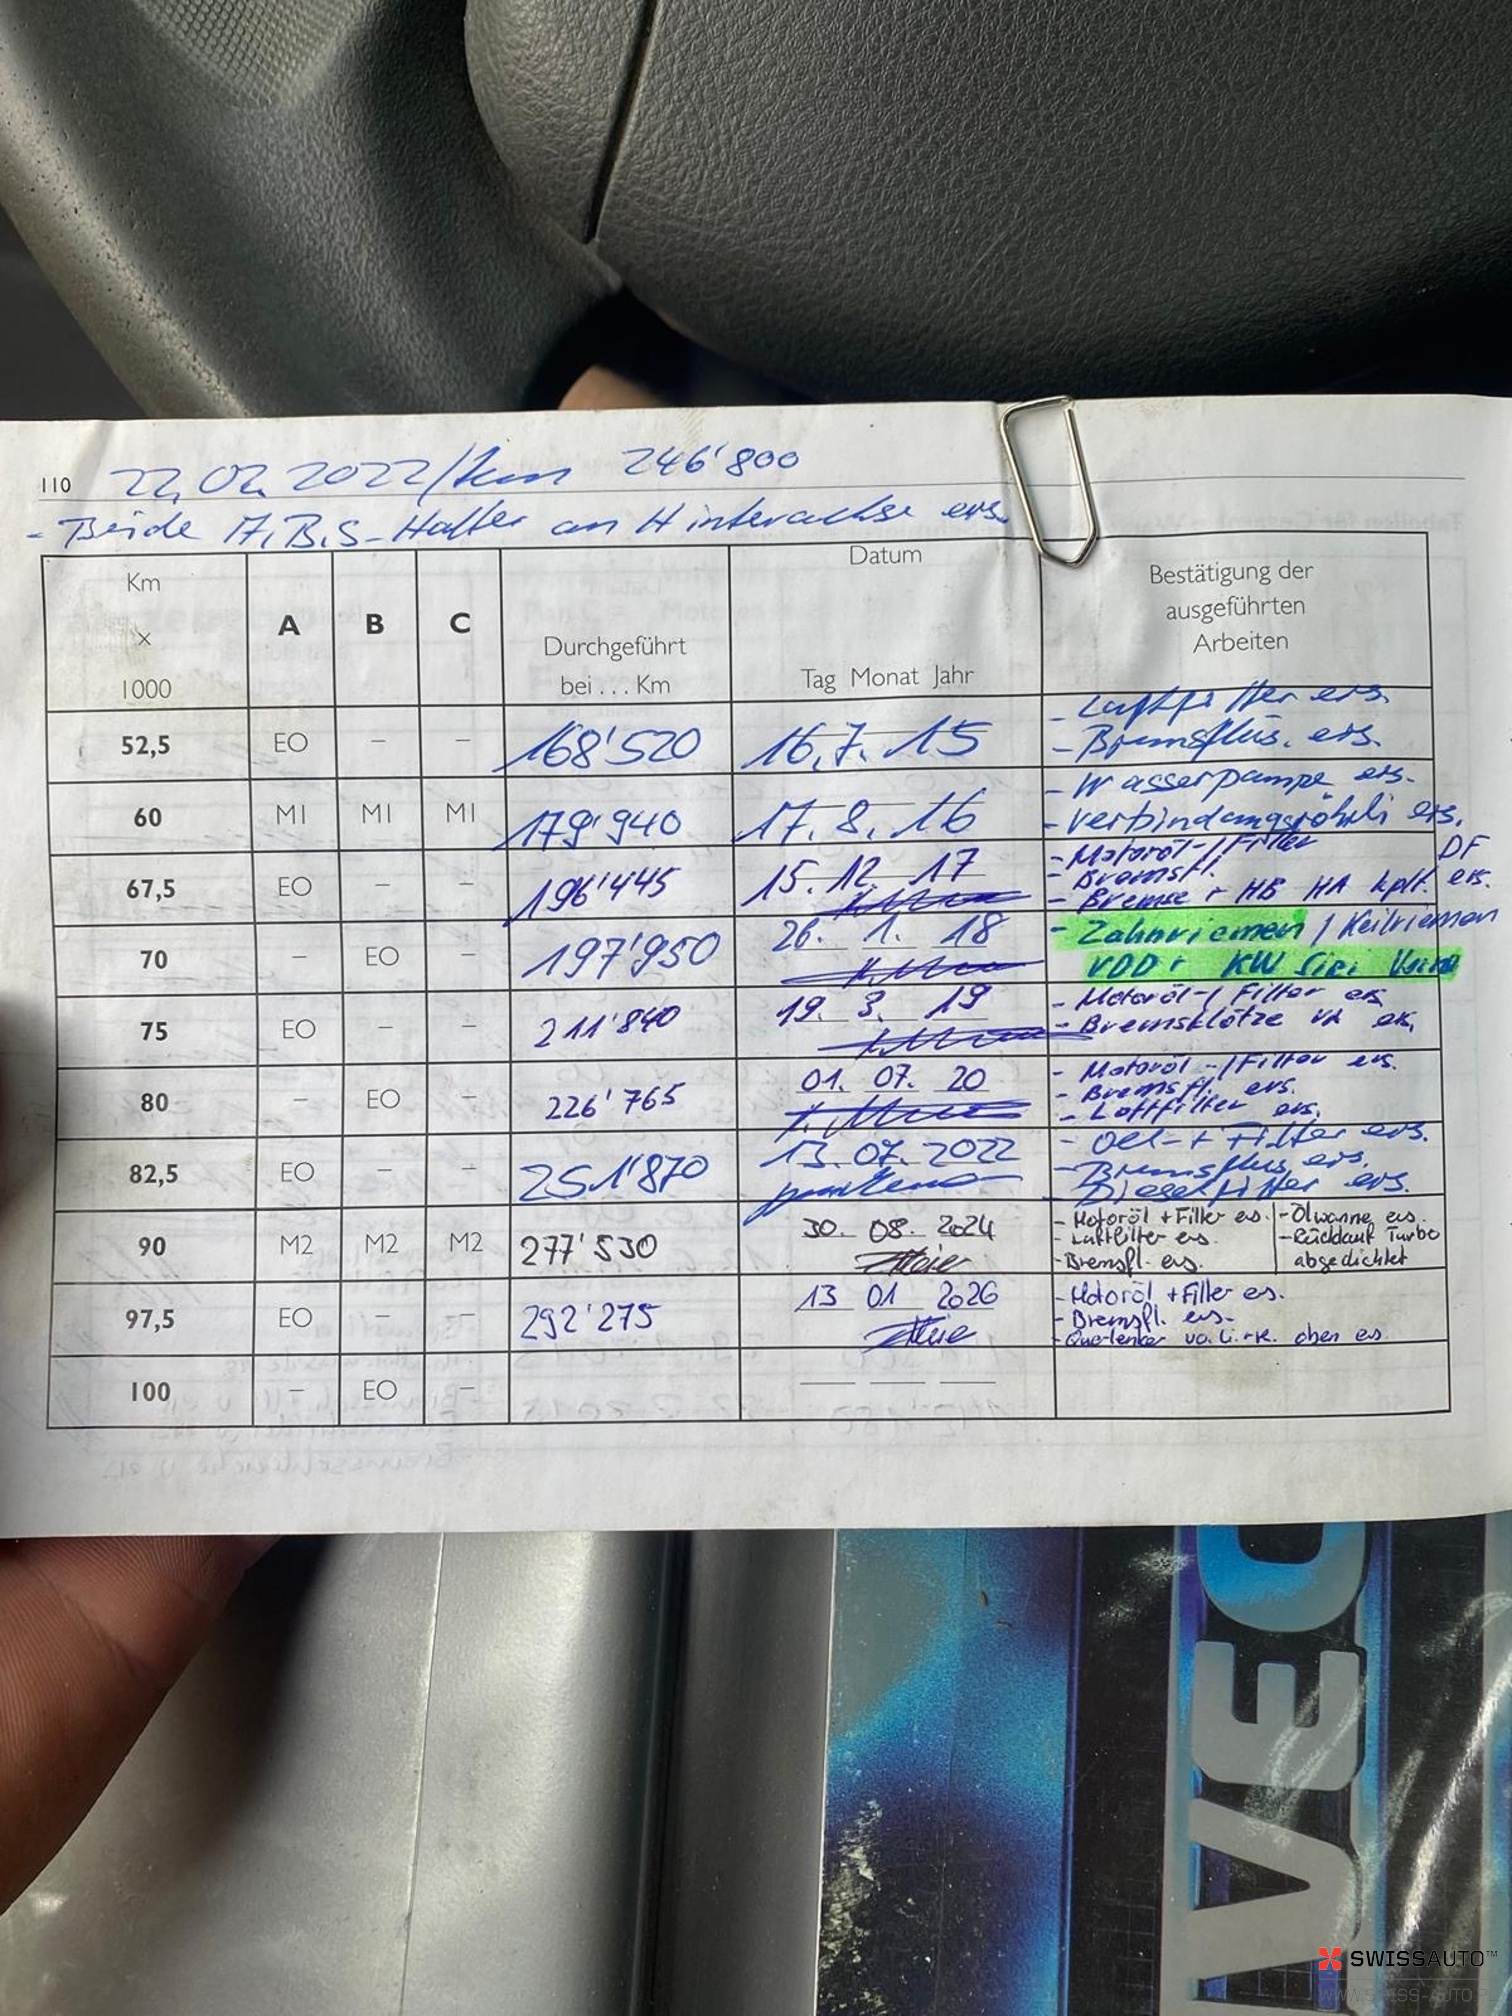 110 22.02.2022/km 246'800
- Beide A.B.S-Halter an Hinterachse ers.
Km
x
1000
A B C
Durchgeführt
bei . . . Km
Datum
Tag Monat Jahr
Bestätigung der
ausgeführten
Arbeiten
52,5 EO – – 168'520 16.7.15
- Luftfilter ers.
- Bremsflüs. ers.
60 M1 M1 M1 179'940 17.8.16
- Wasserpumpe ers.
- Verbindungsröhrli ers.
67,5 EO – – 196'445 15.12.17
- Motoröl-/Filter DF
- Bremsfl.
- Bremse + HB HA kplt. ers.
70 – EO – 197'950 26.1.18
- Zahnriemen / Keilriemen
KW
75 EO – – 211'840 19.3.19
- Motoröl-/Filter ers
- Bremsklötze ers.
80 – EO – 226'765 01.07.20
- Motoröl-/Filter ers.
- Bremsfl. ers.
- Luftfilter ers.
82,5 EO – – 251'870 13.07.2022
- Oel- + Filter ers.
- Bremsflüs. ers.
- Dieselfilter ers.
90 M2 M2 M2 277'530 30.08.2024
- Motoröl + Filter es. - Ölwanne es.
- Luftfilter es. - Rücklauf Turbo
- Bremsfl. es. abgedichtet
97,5 EO – – 292'275 13 01 2026
- Motoröl + Filter es.
- Bremsfl. es.
- Querlenker vo. li. + re. oben es
100 – EO –
IVECO
SWISSAUTO™
WWW.SWISS-AUTO.